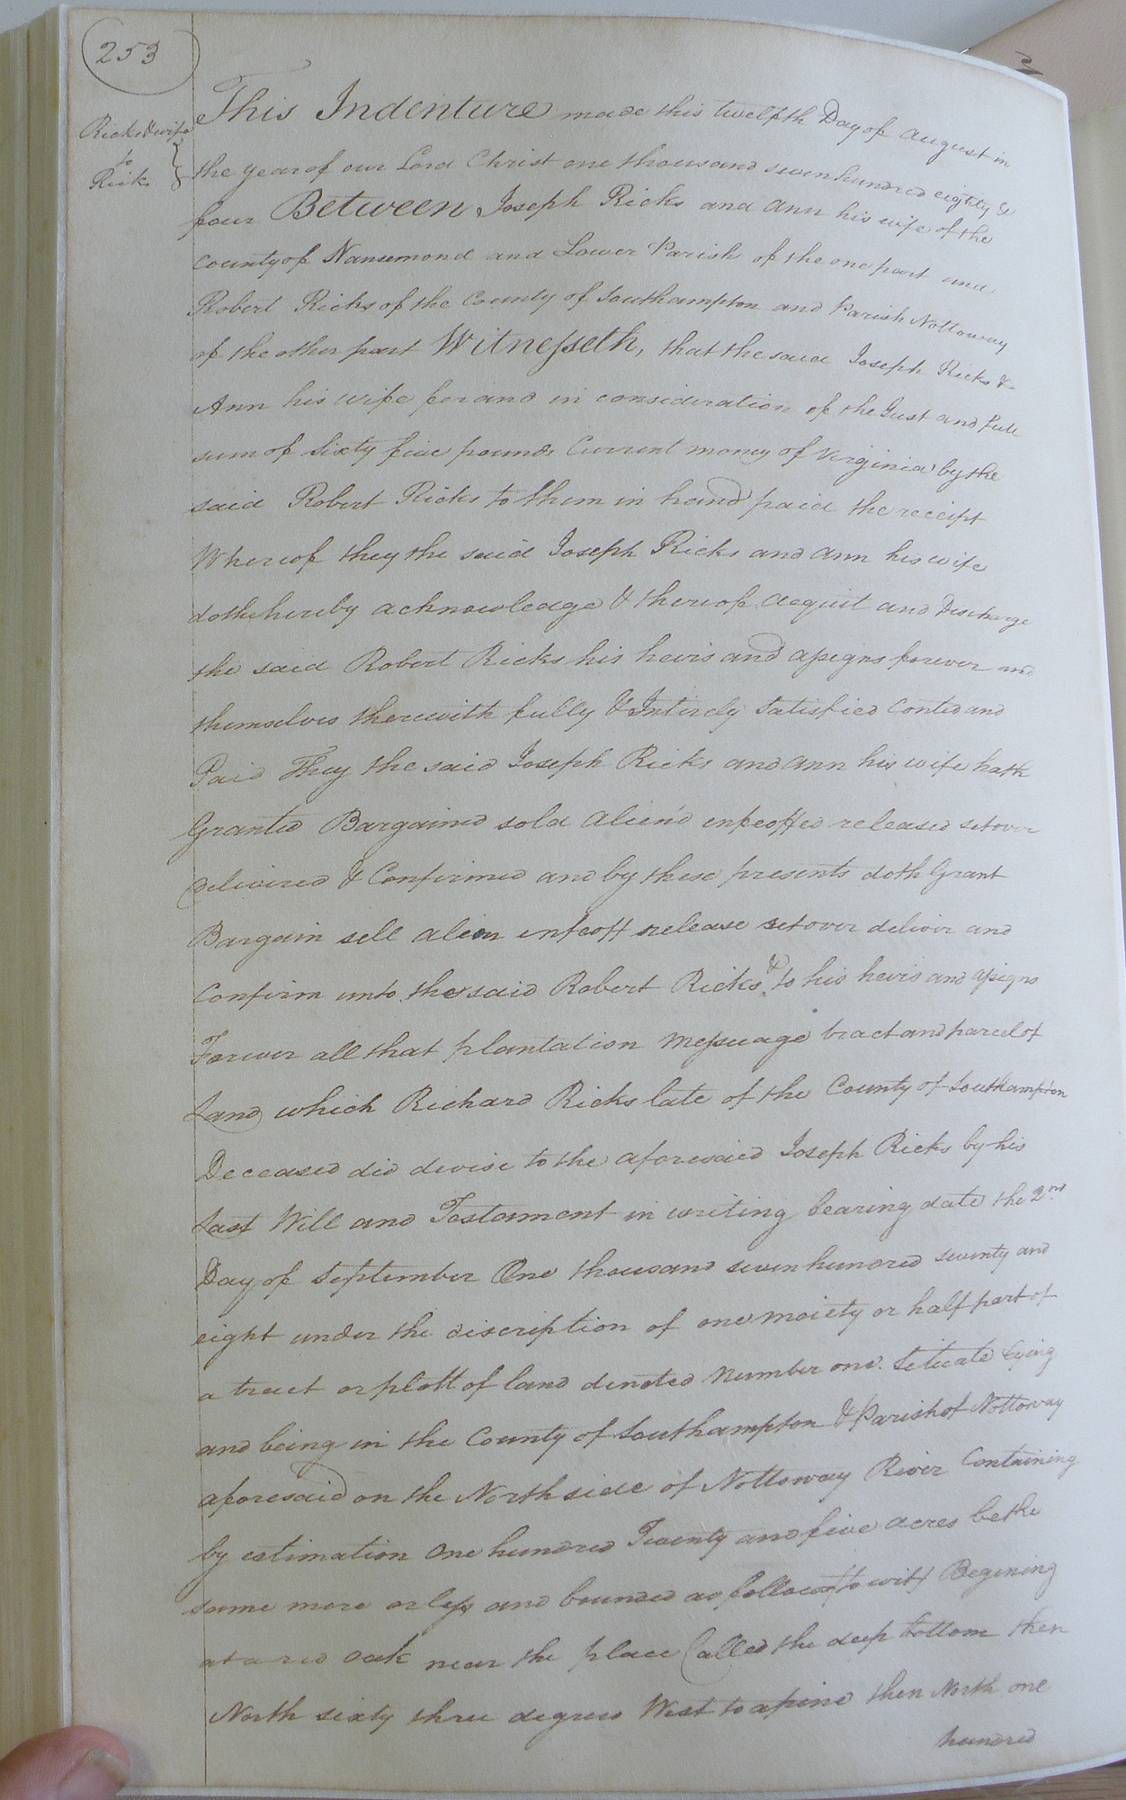 253
Ricks & wife
to
Ricks
This Indenture made this twelfth Day of August in
the year of our Lord Christ one thousand seven hundred eighty &
four Between Joseph Ricks and Ann his wife of the
County of Nansemond and Lower Parish of the one part and
Robert Ricks of the County of Southampton and Parish Nottoway
of the other part Witnesseth, that the said Joseph Ricks &
Ann his wife for and in consideration of the Just and full
sum of Sixty five pounds Current money of Virginia by the
said Robert Ricks to them in hand paid the receipt
Whereof they the said Joseph Ricks and Ann his wife
doth hereby acknowledge & thereof acquit and Discharge
the said Robert Ricks his heirs and assigns forever and
themselves therewith fully & Intirely Satisfied Conted and
Paid They the said Joseph Ricks and Ann his wife hath
Granted Bargained sold Alien'd enfeoffed released set over
delivered & Confirmed and by these presents doth Grant
Bargain sell alien enfeoff release set over deliver and
Confirm unto the said Robert Ricks & to his heirs and assigns
Forever all that plantation Messuage tract and parcel of
Land which Richard Ricks late of the County of Southampton
Deceased did devise to the aforesaid Joseph Ricks by his
Last Will and Testament in writing bearing date the 2nd
Day of September One thousand seven hundred seventy and
eight under the discription of one moiety or half part of
a tract or plott of land denoted Number one. Setuate Lying
and being in the County of Southampton & Parish of Nottoway
aforesaid on the North side of Nottoway River Containing
by estimation One hundred Twenty and five acres be the
same more or less and bounded as follows to wit Begining
at a red oak near the place Called the deep bottom then
North sixty three degrees West to a pine then North one
hundred